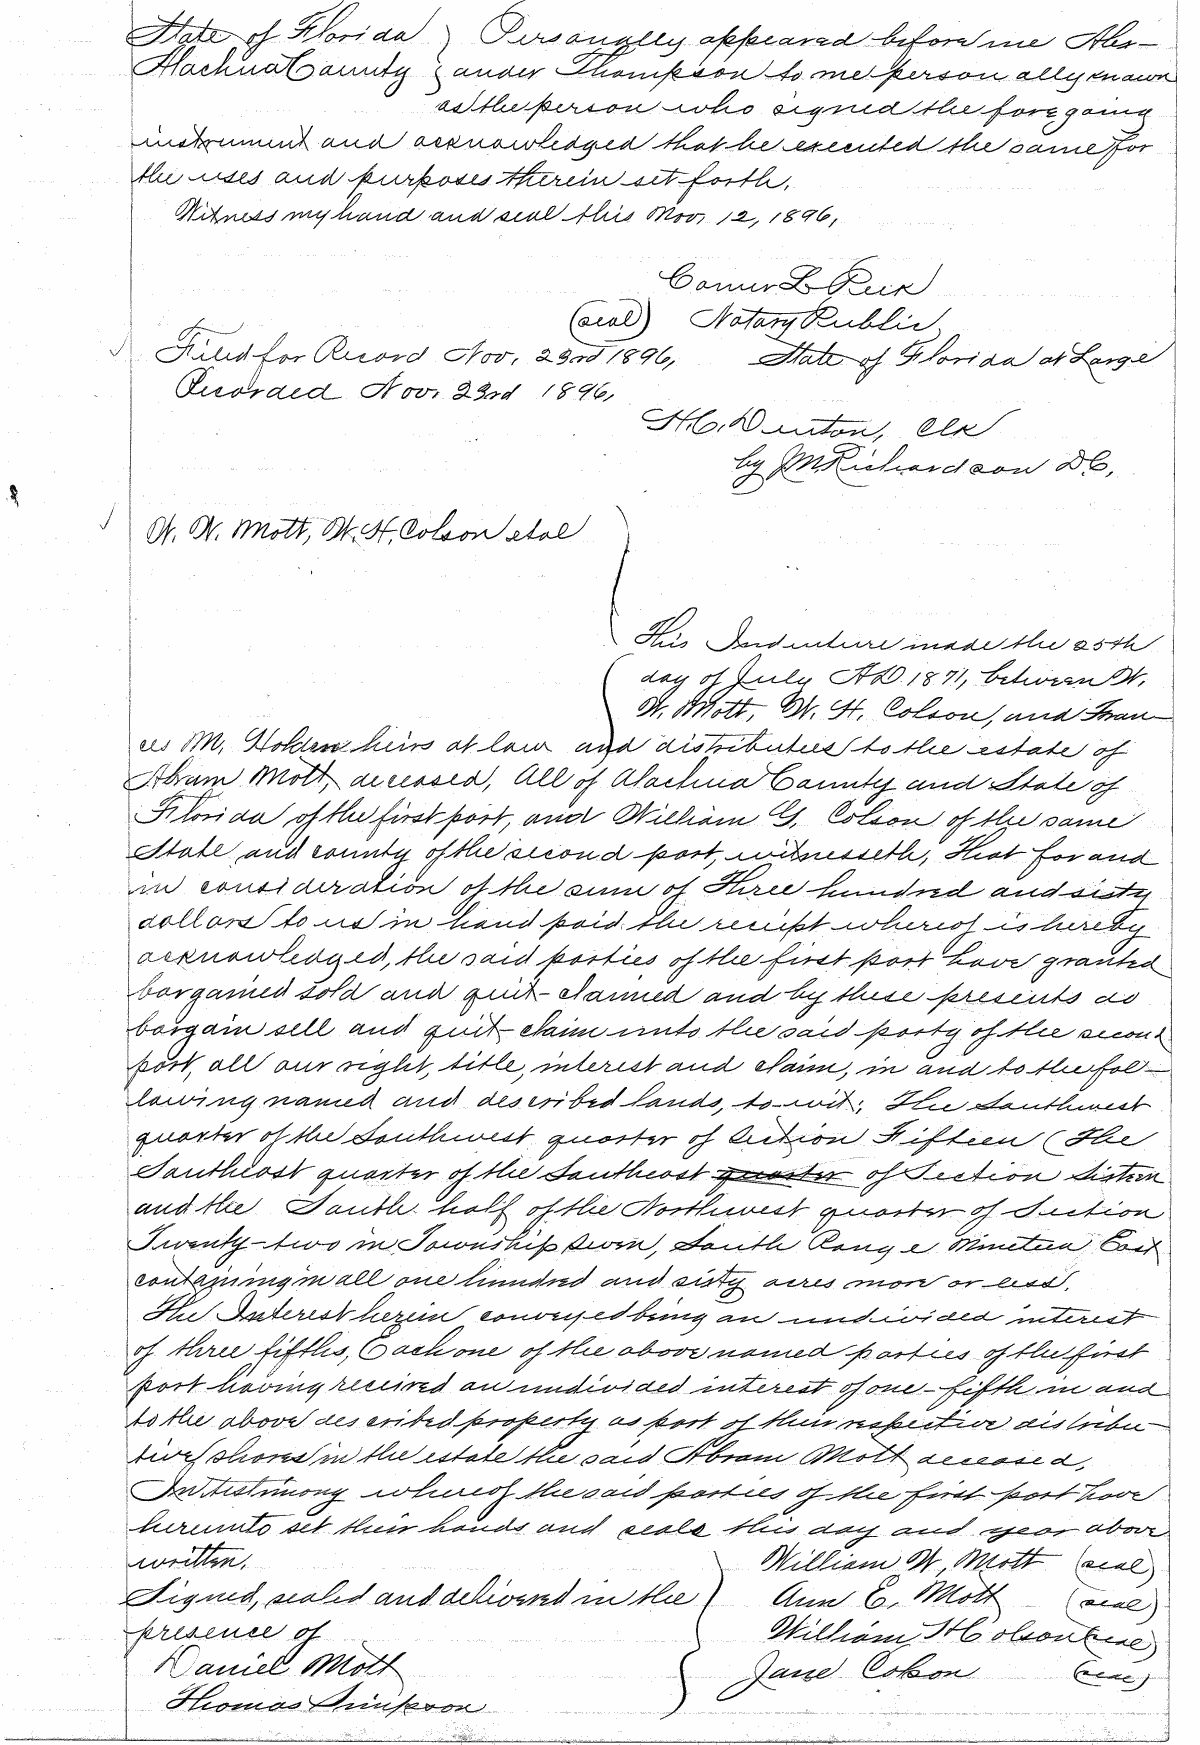 State of Florida } Personally appeared before me Alex-
Alachua County } ander Thompson to me person ally known
as the person who signed the fore going
instrument and acknowledged that he executed the same for
the uses and purposes therein set forth.
Witness my hand and seal this Nov. 12, 1896,
Comer L Peek
(seal) Notary Public
Filed for Record Nov. 23rd 1896, State of Florida at Large
Recorded Nov. 23rd 1896,
H.C. Denton, Clk
by JM Richardson D.C.
W. W. Mott, W. H. Colson et al
This Indenture made the 25th
day of July A.D. 1871, between W.
W. Mott, W. H. Colson, and Fran-
ces M. Holden heirs at law and distributees to the estate of
Abram Mott, deceased, All of Alachua County and State of
Florida of the first part, and William G. Colson of the same
State and county of the second part, witnesseth, That for and
in consideration of the sum of Three hundred and sixty
dollars to us in hand paid the receipt whereof is hereby
acknowledged, the said parties of the first part have granted
bargained sold and quit-claimed and by these presents do
bargain sell and quit claim unto the said party of the second
part, all our right, title, interest and claim, in and to the fol-
lowing named and described lands, to-wit; The Southwest
quarter of the Southwest quarter of Section Fifteen (The
Southeast quarter of the Southeast quarter of Section Sixteen
and the South half of the Northwest quarter of Section
Twenty-two in Township Seven, South Range Nineteen East
containing in all one hundred and sixty acres more or less.
The Interest herein conveyed being an undivided interest
of three fifths, Each one of the above named parties of the first
part having received an undivided interest of one-fifth in and
to the above described property as part of their respective distribu-
tive shares in the estate the said Abram Mott deceased,
In testimony whereof the said parties of the first part have
hereunto set their hands and seals this day and year above
written. William W. Mott (seal)
Signed, sealed and delivered in the } Ann E. Mott (seal)
presence of William H Colson (seal)
Daniel Mott Jane Colson (seal)
Thomas Simpson